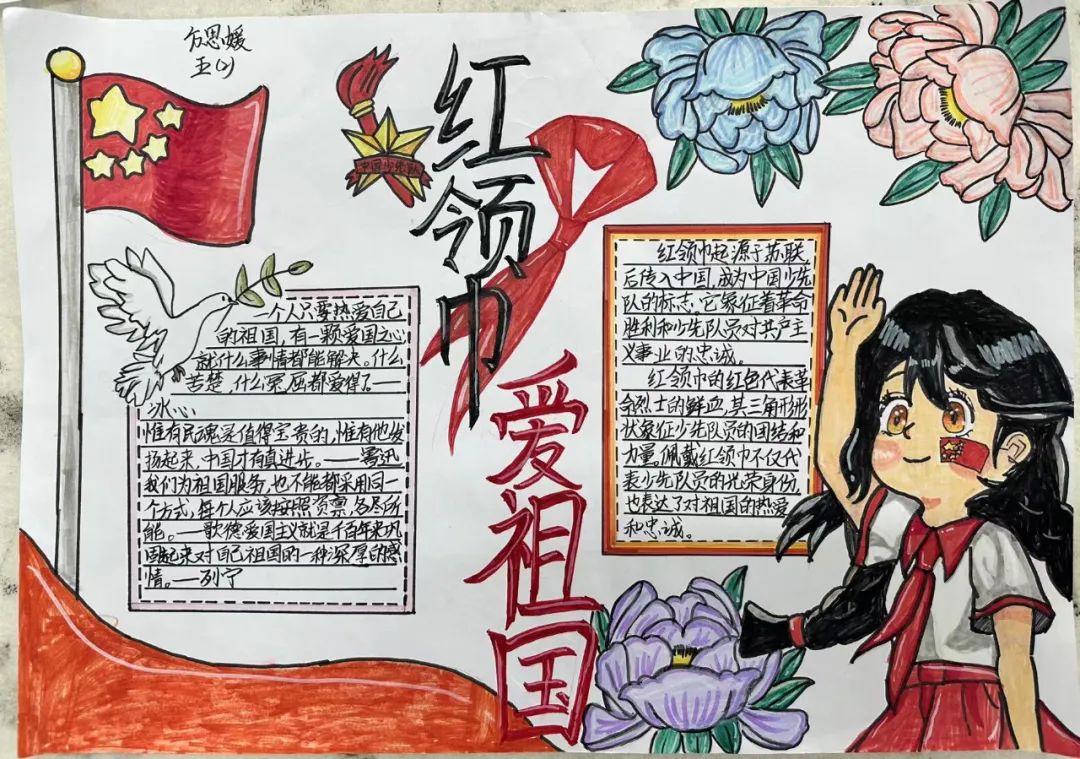 方思媛
五(2)
中国少先队
红领巾
爱祖国
一个人只要热爱自己
的祖国,有一颗爱国之心
就什么事情都能解决。什么
苦楚,什么冤屈都爱得了——
冰心
惟有民魂是值得宝贵的,惟有他发
扬起来,中国才有真进步。——鲁迅
我们为祖国服务,也不能都采用同一
个方式,每个人应该按照资禀,各尽所
能。——歌德爱国主义就是千百年来巩
固起来对自己祖国的一种深厚的感
情。——列宁
红领巾起源于苏联
后传入中国,成为中国少先
队的标志。它象征着革命
胜利和少先队员对共产主
义事业的忠诚。
红领巾的红色代表革
命烈士的鲜血,其三角形形
状象征少先队员的团结和
力量。佩戴红领巾不仅代
表少先队员的光荣身份,
也表达了对祖国的热爱
和忠诚。